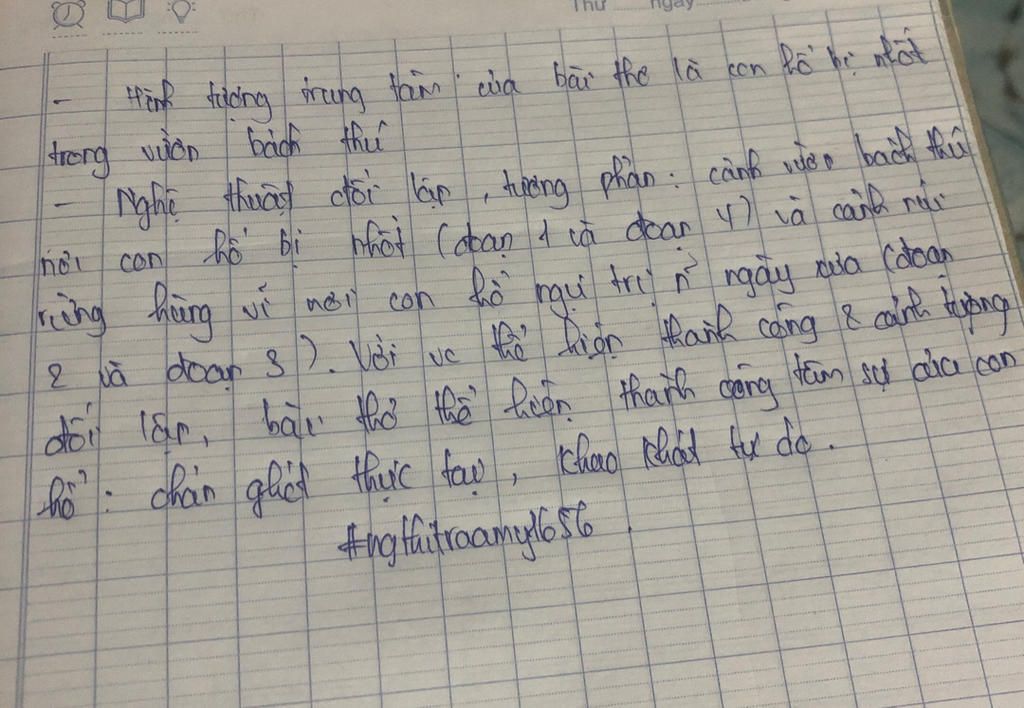 Thứ ngày
- Hình tượng trung tâm của bài thơ là con hổ bị nhốt
trong vườn bách thú
- Nghệ thuật đối lập, tương phản: cảnh vườn bách thú
nơi con hổ bị nhốt (đoạn 1 và đoạn 4) và cảnh núi
rừng hùng vĩ nơi con hổ ngự trị n~ ngày xưa (đoạn
2 và đoạn 3). Với vc thể hiện thành công 2 cảnh tượng
đối lập, bài thơ thể hiện thành công tâm sự của con
hổ: chán ghét thực tại, khao khát tự do.
#ngthitraamy1656